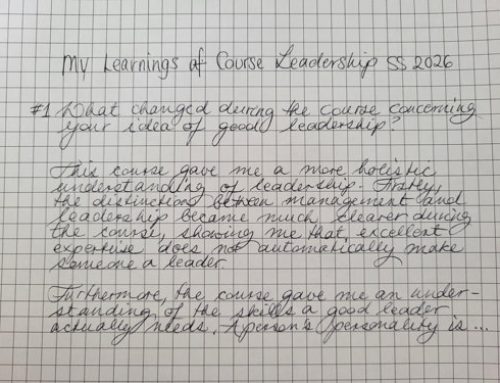 My Learnings of Course Leadership SS 2026
#1 What changed during the course concerning
your idea of good leadership?
This course gave me a more holistic
understanding of leadership. Firstly,
the distinction between management and
leadership became much clearer during
the course, showing me that excellent
expertise does not automatically make
someone a leader.
Furthermore, the course gave me an under-
standing of the skills a good leader
actually needs. A person's personality is ...